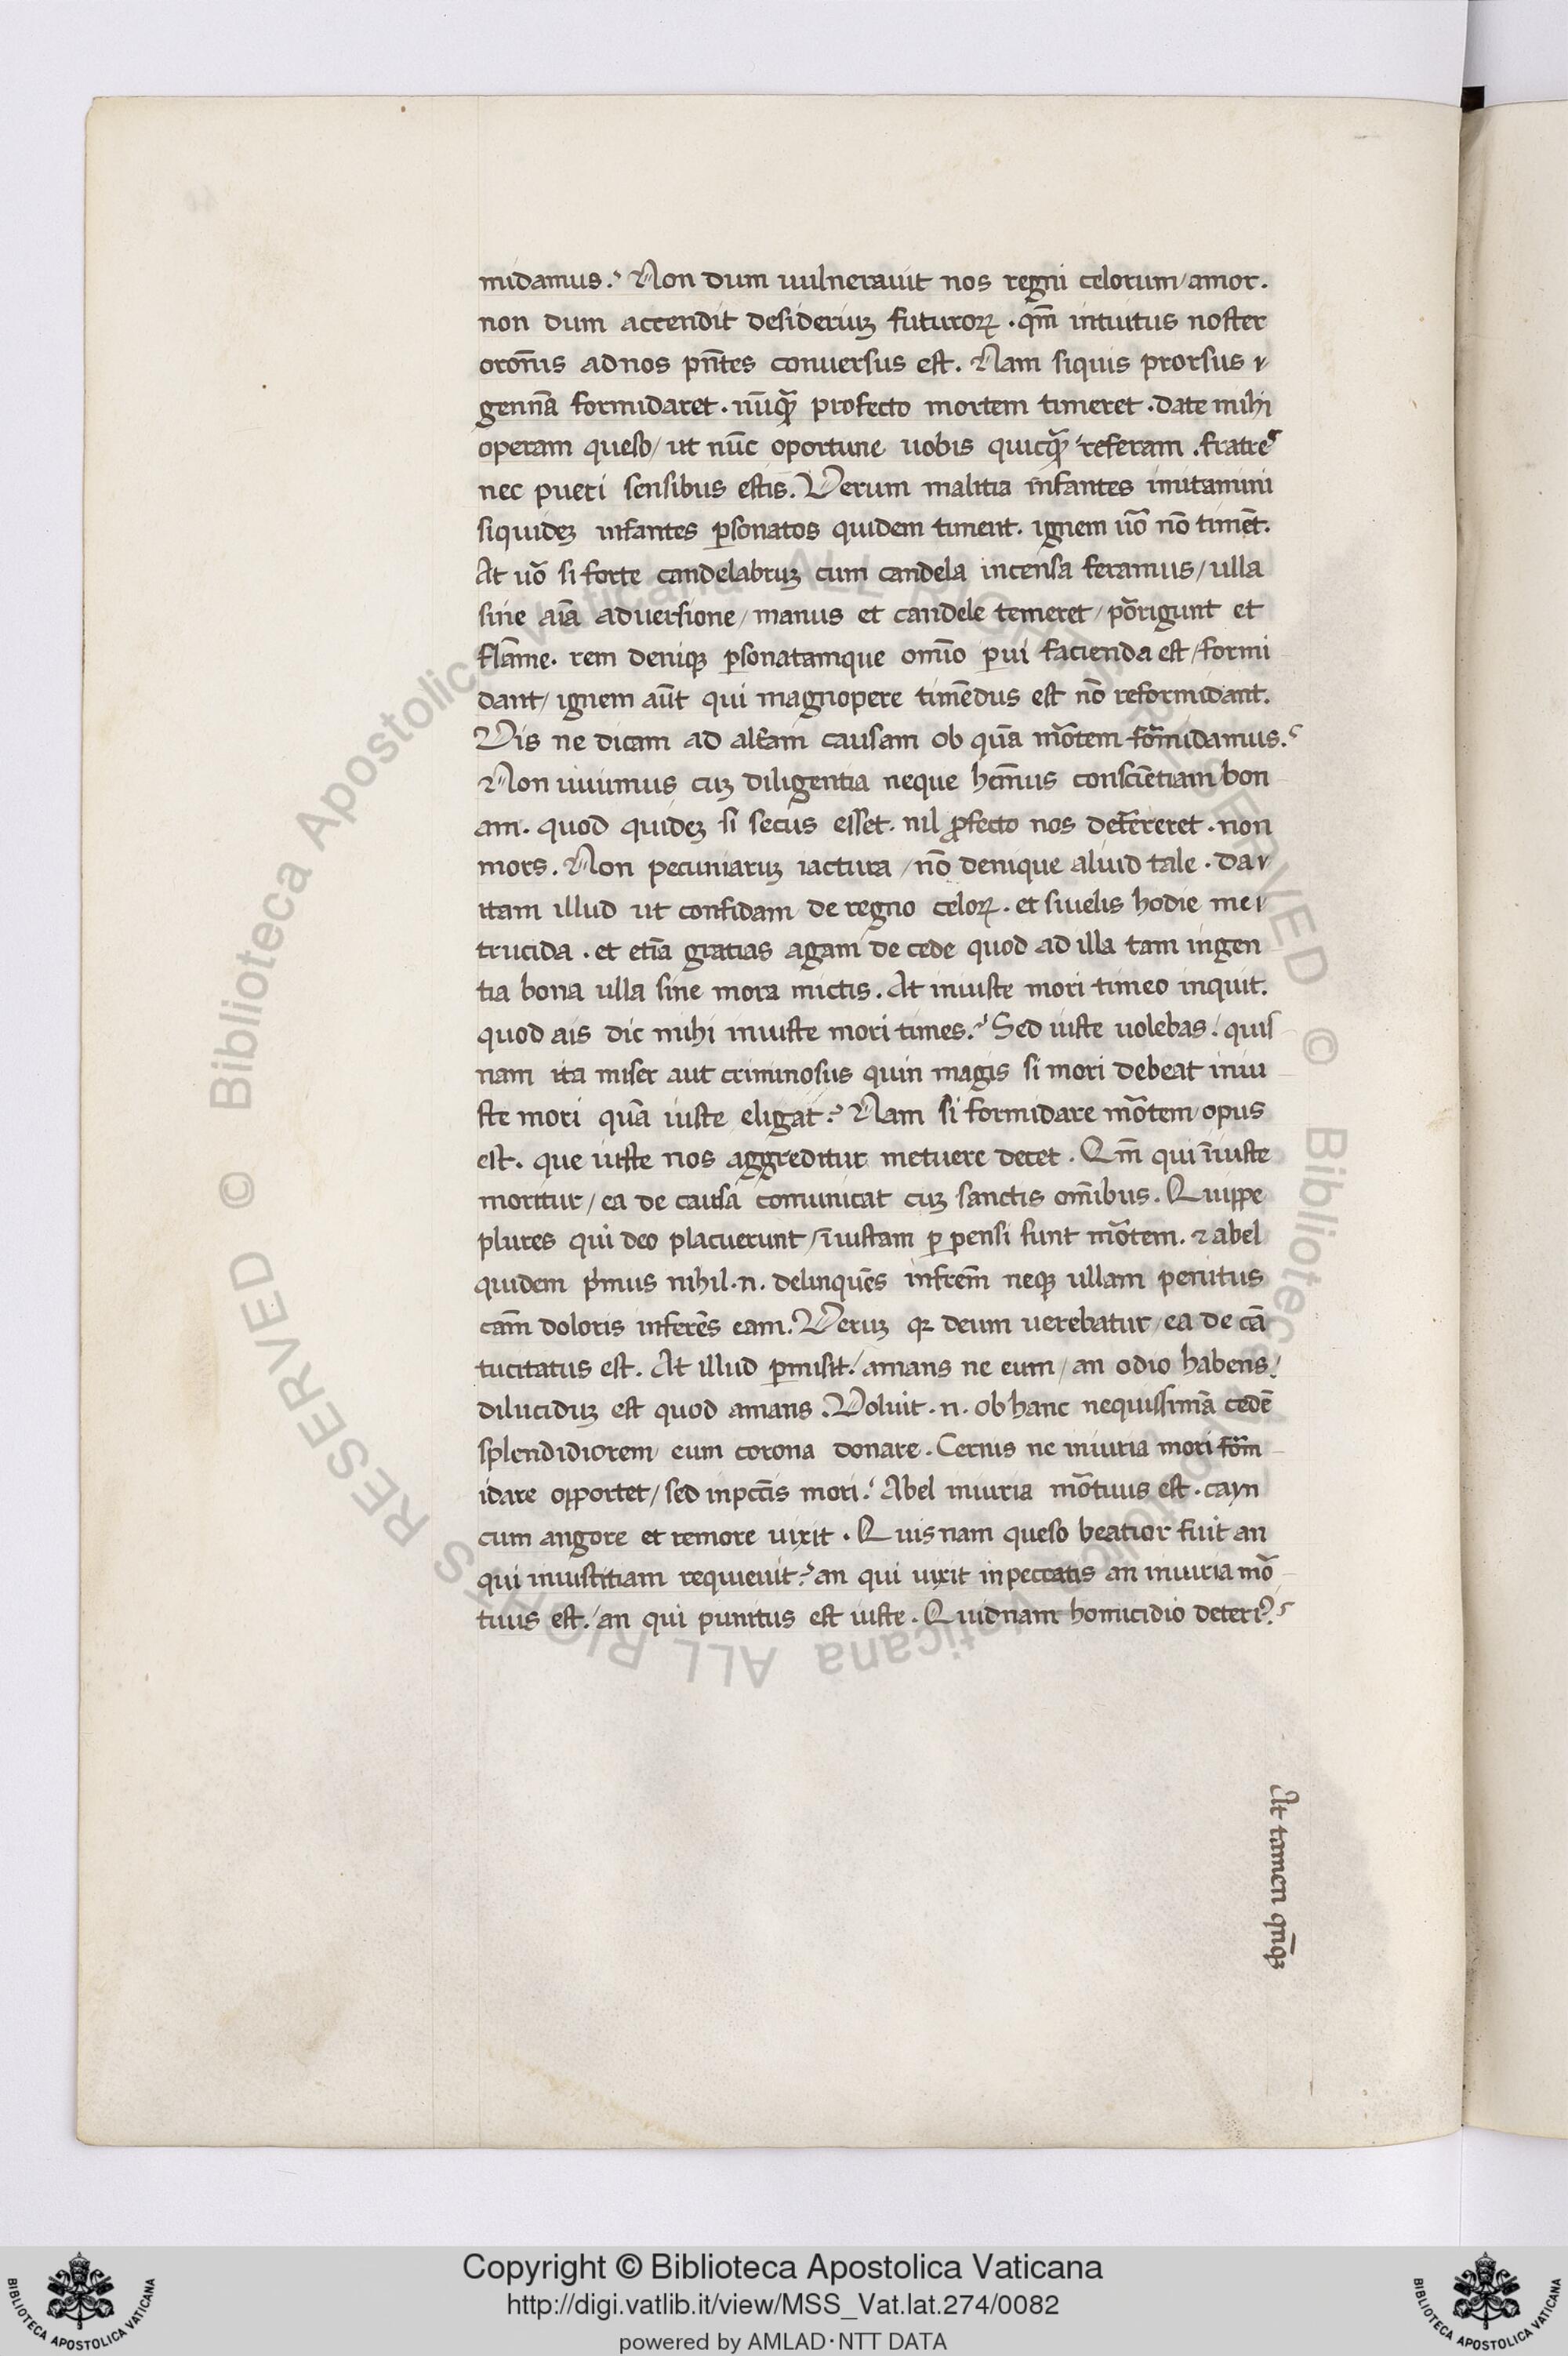 midamus? Non dum uulnerauit nos regni celorum/amor.
non dum accendit desideriuꝫ futuroꝝ . qm̄ intuitus noster
oronis ad nos pn̄tes conuersus est. Nam siquis prorsus
gennā formidaret . nūqꝫ profecto mortem timeret . date mihi
operam queso/ ut nūc oportune uobis quicqꝫ referam . fratres
nec pueri sensibus estis. Verum malitia infantes imitamini
siquideꝫ infantes ꝑsonatos quidem timent. ignem uō nō timēt.
At uō si forte candelabruꝫ cum candela incensa feramus/ ulla
sine aīa aduersione/ manus et candele temeret/ porrigunt et
flāme. rem deniqꝫ ꝑsonatamque omīo ꝑui facienda est/ formi
dant/ ignem aūt qui magnopere timēdus est nō reformidant.
Vis ne dicam ad altam causam ob quā mōtem formidamus?
Non uiuimus cuꝫ diligentia neque hēmus consciētiam bon
am. quod quideꝫ si secus esset. nil ꝓfecto nos deterreret . non
mors. Non pecuniaruꝫ iactura/ nō denique aliud tale . da
itam illud ut confidam de regno celoꝝ . et siuelis hodie me
trucida . et etīa gratias agam de cede quod ad illa tam ingen
tia bona ulla sine mora mictis. At iniuste mori timeo inquit.
quod ais dic mihi iniuste mori times? Sed iuste uolebas? quis
nam ita miser aut criminosus quin magis si mori debeat iniu
ste mori quā iuste eligat? Nam si formidare mōtem opus
est. que iuste nos aggreditur metuere decet . Qm̄ qui īiuste
moritur/ ea de causa comunicat cuꝫ sanctis om̄ibus. Quippe
plures qui deo placuerunt/ īiustam ꝑ pensi sunt mōtem. & abel
quidem pimus nihil .n. delinquēs infrēm neqꝫ ullam penitus
cām doloris inferēs eam. Veruꝫ qꝛ deum uerebatur/ ea de cā
tucitatus est. At illud ꝑmisit? amans ne eum/ an odio habens?
diluciduꝫ est quod amans. Voluit .n. ob hanc nequissimā cedē
splendidiorem eum corona donare. Cernis ne iniuria mori form
idare opportet/ sed in pctīs mori? Abel iniuria mōtuus est . cayn
cum angore et remore uixit . Quis nam queso beatior fuit an
qui iniustitiam requieuit? an qui uixit in peccatis an iniuria mō
tuus est? an qui punitus est iuste. Quidnam homicidio deteri?
At tamen
Copyright © Biblioteca Apostolica Vaticana
http://digi.vatlib.it/view/MSS_Vat.lat.274/0082
powered by AMLAD·NTT DATA
BIBLIOTECA APOSTOLICA VATICANA
BIBLIOTECA APOSTOLICA VATICANA
© Biblioteca Apostolica Vaticana ALL RIGHTS RESERVED © Biblioteca Apostolica Vaticana ALL RIGHTS RESERVED